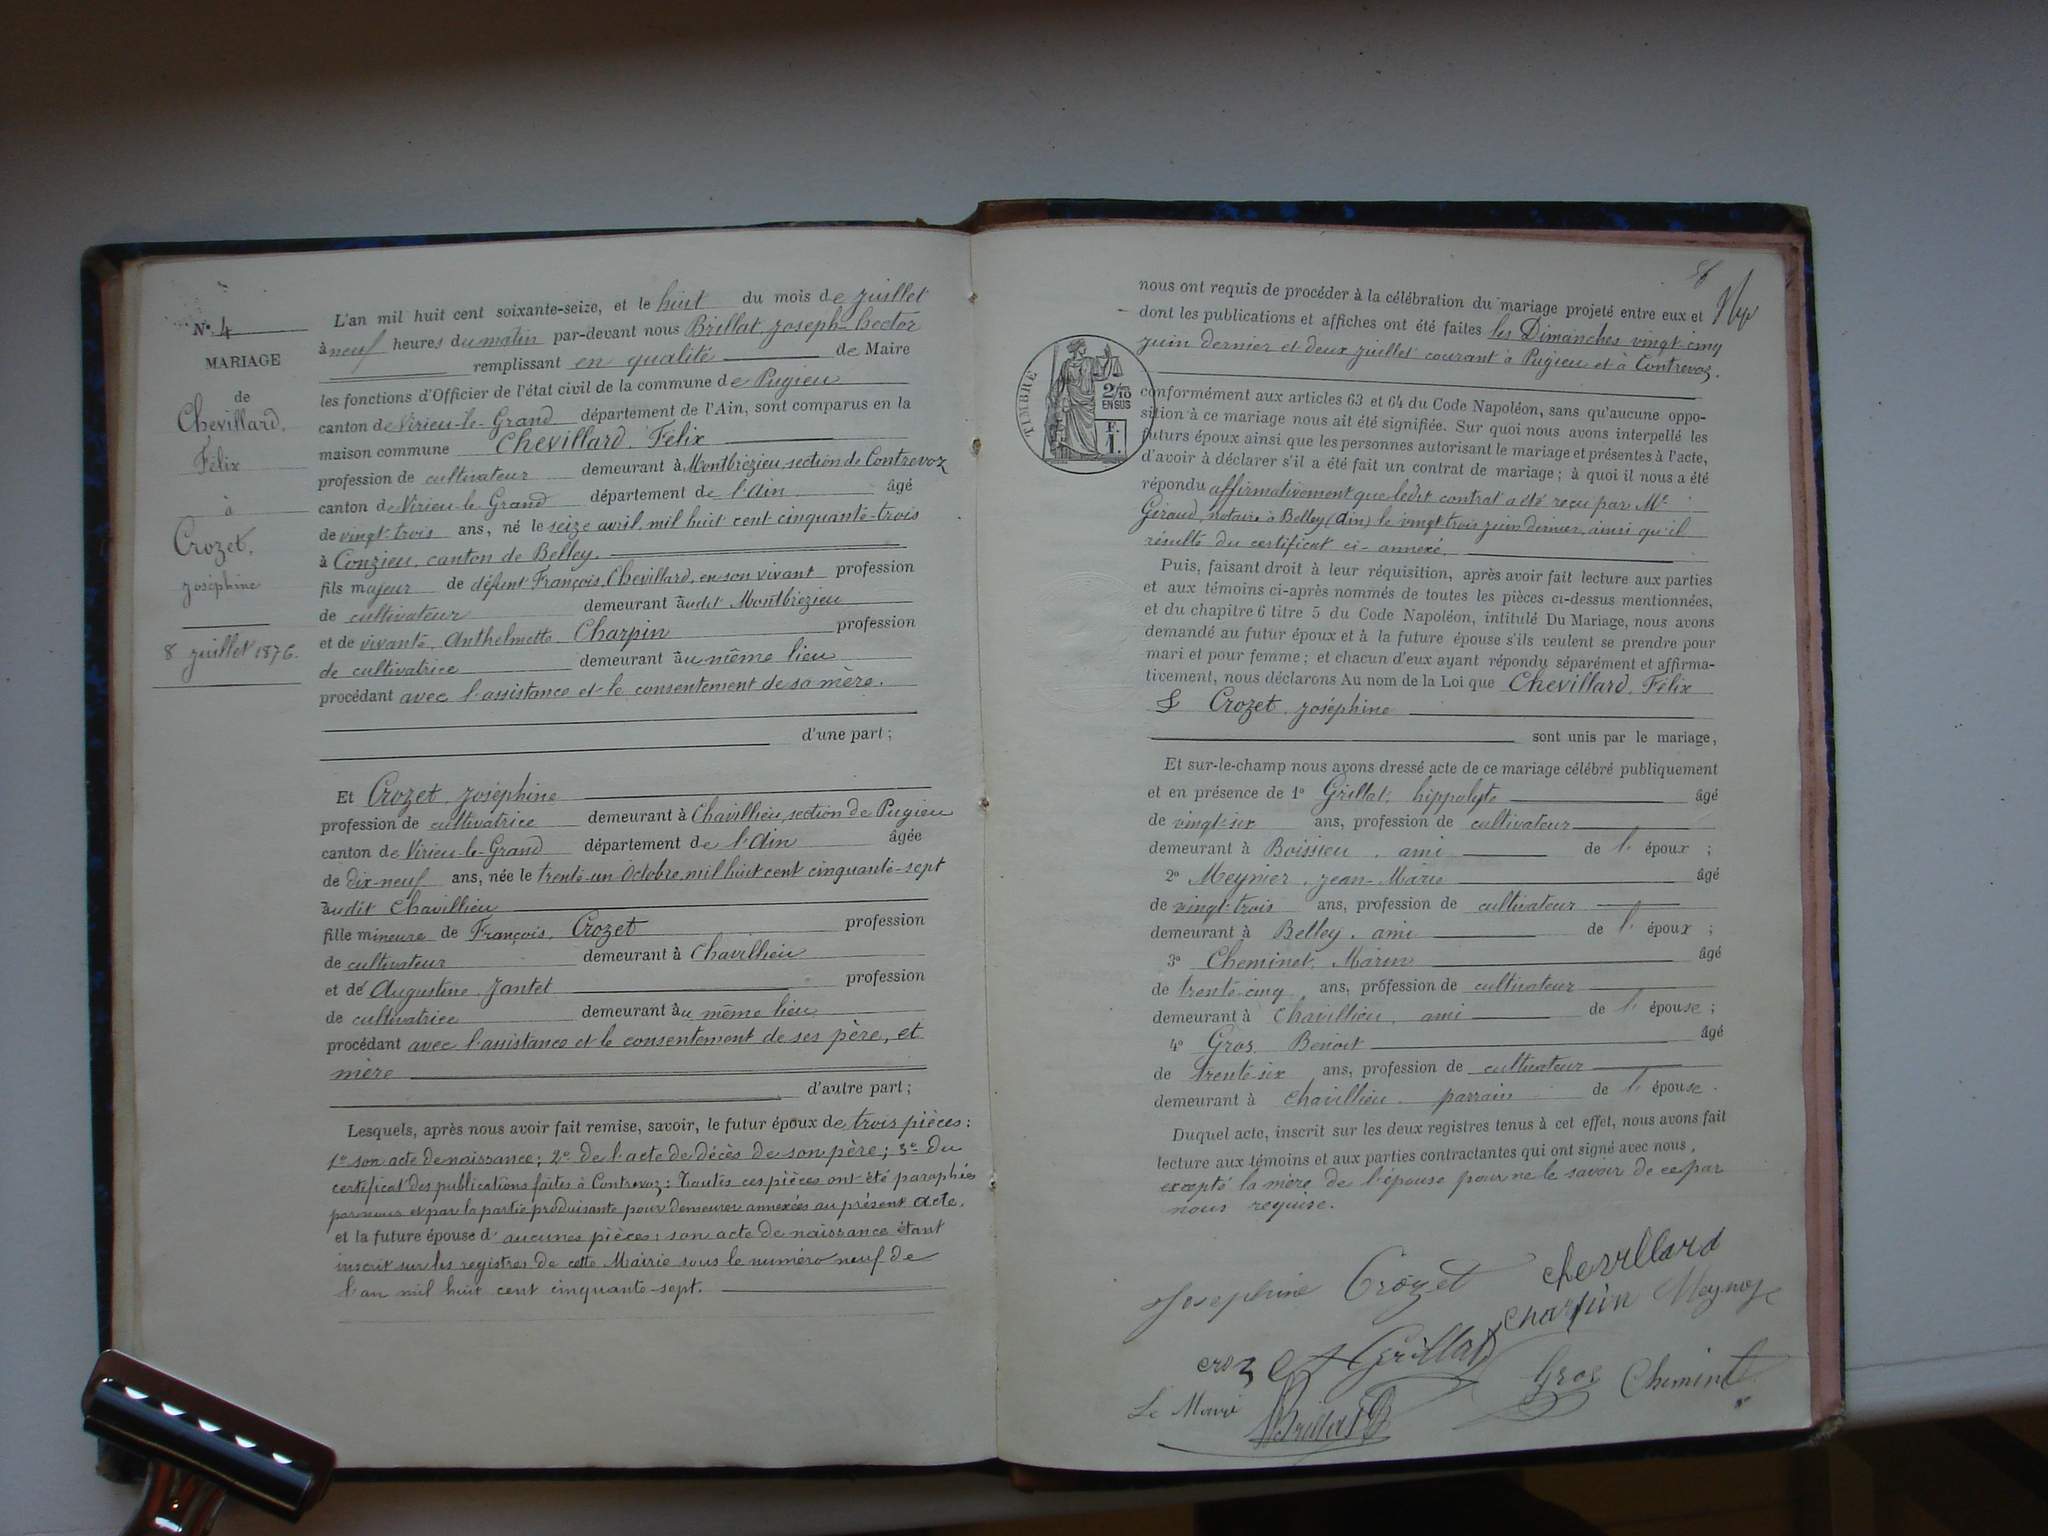 N° 4
MARIAGE
de
Chevillard,
Félix
à
Crozet,
Joséphine
8 juillet 1876.
L'an mil huit cent soixante-seize, et le huit du mois de juillet
à neuf heures du matin par-devant nous Brillat, Joseph-hector
remplissant en qualité de Maire
les fonctions d'Officier de l'état civil de la commune de Pugieu
canton de Virieu-le-Grand département de l'Ain, sont comparus en la
maison commune Chevillard, Félix
profession de cultivateur demeurant à Montbrézieu, section de Contrevoz
canton de Virieu-le-Grand département de l'Ain âgé
de vingt-trois ans, né le seize avril, mil huit cent cinquante-trois
à Conzieu, canton de Belley.
fils majeur de défunt François, Chevillard, en son vivant profession
de cultivateur demeurant audit Montbrézieu
et de vivante, Anthelmette Charpin profession
de cultivatrice demeurant au même lieu
procédant avec l'assistance et le consentement de sa mère.
d'une part ;
Et Crozet, Joséphine
profession de cultivatrice demeurant à Chavillieu, section de Pugieu
canton de Virieu-le-Grand département de l'Ain âgée
de dix-neuf ans, née le trente-un Octobre, mil huit cent cinquante-sept
audit Chavillieu
fille mineure de François, Crozet profession
de cultivateur demeurant à Chavillieu
et de Augustine, Jantet profession
de cultivatrice demeurant au même lieu
procédant avec l'assistance et le consentement de ses père, et
mère
d'autre part ;
Lesquels, après nous avoir fait remise, savoir, le futur époux de trois pièces :
1° son acte de naissance ; 2° de l'acte de décès de son père ; 3° du
certificat des publications faites à Contrevoz : Toutes ces pièces ont été paraphées
par nous et par la partie produisante pour demeurer annexées au présent acte.
et la future épouse d'aucunes pièces : son acte de naissance étant
inscrit sur les registres de cette Mairie sous le numéro neuf de
l'an mil huit cent cinquante-sept.
nous ont requis de procéder à la célébration du mariage projeté entre eux et
dont les publications et affiches ont été faites les Dimanches vingt-cinq
juin dernier et deux juillet courant à Pugieu et à Contrevoz.
TIMBRE
2/10
EN SUS
F.
1.
conformément aux articles 63 et 64 du Code Napoléon, sans qu'aucune oppo-
sition à ce mariage nous ait été signifiée. Sur quoi nous avons interpellé les
futurs époux ainsi que les personnes autorisant le mariage et présentes à l'acte,
d'avoir à déclarer s'il a été fait un contrat de mariage ; à quoi il nous a été
répondu affirmativement que ledit contrat a été reçu par Me
Giraud, notaire à Belley (Ain) le vingt-trois juin dernier, ainsi qu'il
résulte du certificat ci-annexé.
Puis, faisant droit à leur réquisition, après avoir fait lecture aux parties
et aux témoins ci-après nommés de toutes les pièces ci-dessus mentionnées,
et du chapitre 6 titre 5 du Code Napoléon, intitulé Du Mariage, nous avons
demandé au futur époux et à la future épouse s'ils veulent se prendre pour
mari et pour femme ; et chacun d'eux ayant répondu séparément et affirma-
tivement, nous déclarons Au nom de la Loi que Chevillard, Félix
& Crozet, Joséphine
sont unis par le mariage,
Et sur-le-champ nous avons dressé acte de ce mariage célébré publiquement
et en présence de 1° Grillat, hippolyte âgé
de vingt-six ans, profession de cultivateur
demeurant à Boissieu, ami de l' époux ;
2° Meynier, Jean-Marie âgé
de vingt-trois ans, profession de cultivateur
demeurant à Belley, ami de l' époux ;
3° Cheminet, Marin âgé
de trente-cinq ans, profession de cultivateur
demeurant à Chavillieu, ami de l' épouse ;
4° Gros, Benoit âgé
de trente-six ans, profession de cultivateur
demeurant à Chavillieu, parrain de l' épouse.
Duquel acte, inscrit sur les deux registres tenus à cet effet, nous avons fait
lecture aux témoins et aux parties contractantes qui ont signé avec nous,
excepté la mère de l'épouse pour ne le savoir de ce par
nous requise.
Josephine Crozet chevillard
charpin
crozet Grillat Gros Cheminet
Le Maire Brillat